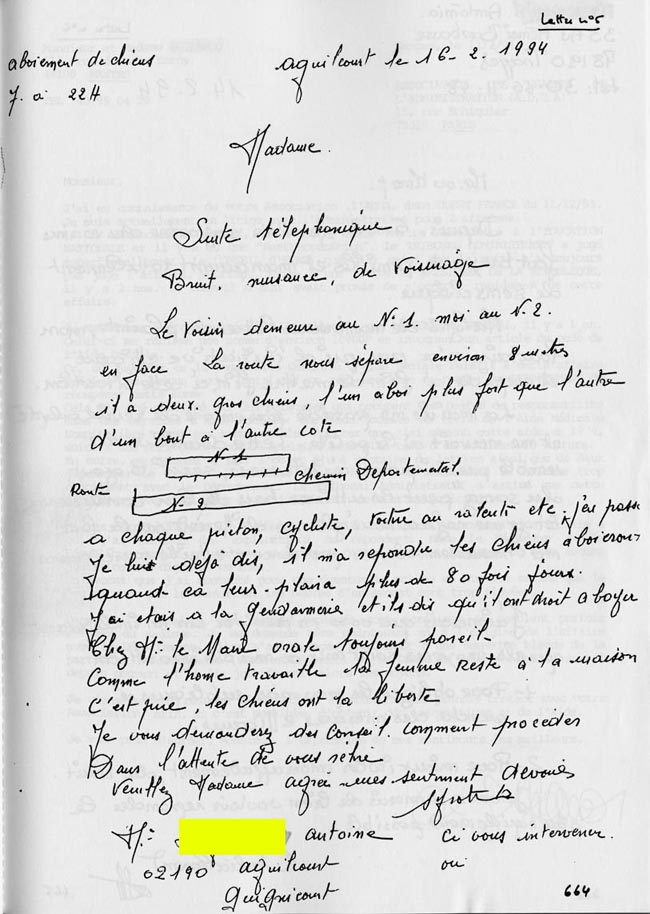 Lettre n°5
aboiement de chiens
7. à 22H
aguilcourt le 16-2.1994
Madame.
Suite téléphonique
Bruit, nuisance, de Voisinage
Le Voisin demeure au N°1. moi au N°2.
en face La route nous sépare environ 8 mètres
il a deux. gros chiens, l'un aboi plus fort que l'autre
d'un bout à l'autre coté
N°1
chemin Départemental.
Route
N°2
a chaque piéton, cycliste, voiture au ralenti etc. j'ai passé
Je lui déjà dis, il m'a répondu les chiens aboieront
quand ca leur plaira plus de 80 fois jours.
J'ai étais a la Gendarmerie et ils dis qu'il ont droit a boyer
Chez Mr le Maire orale toujours pareil
Comme l'home travaille la femme reste à la maison
C'est pire, les chiens ont la liberté
Je vous demanderez des Conseil. comment procéder
Dans l'attente de vous rétire
Veuillez Madame agrée mes sentiment dévoués
Mr antoine
ci vous intervener.
02190 aguilcourt
oui
Guignicourt
664